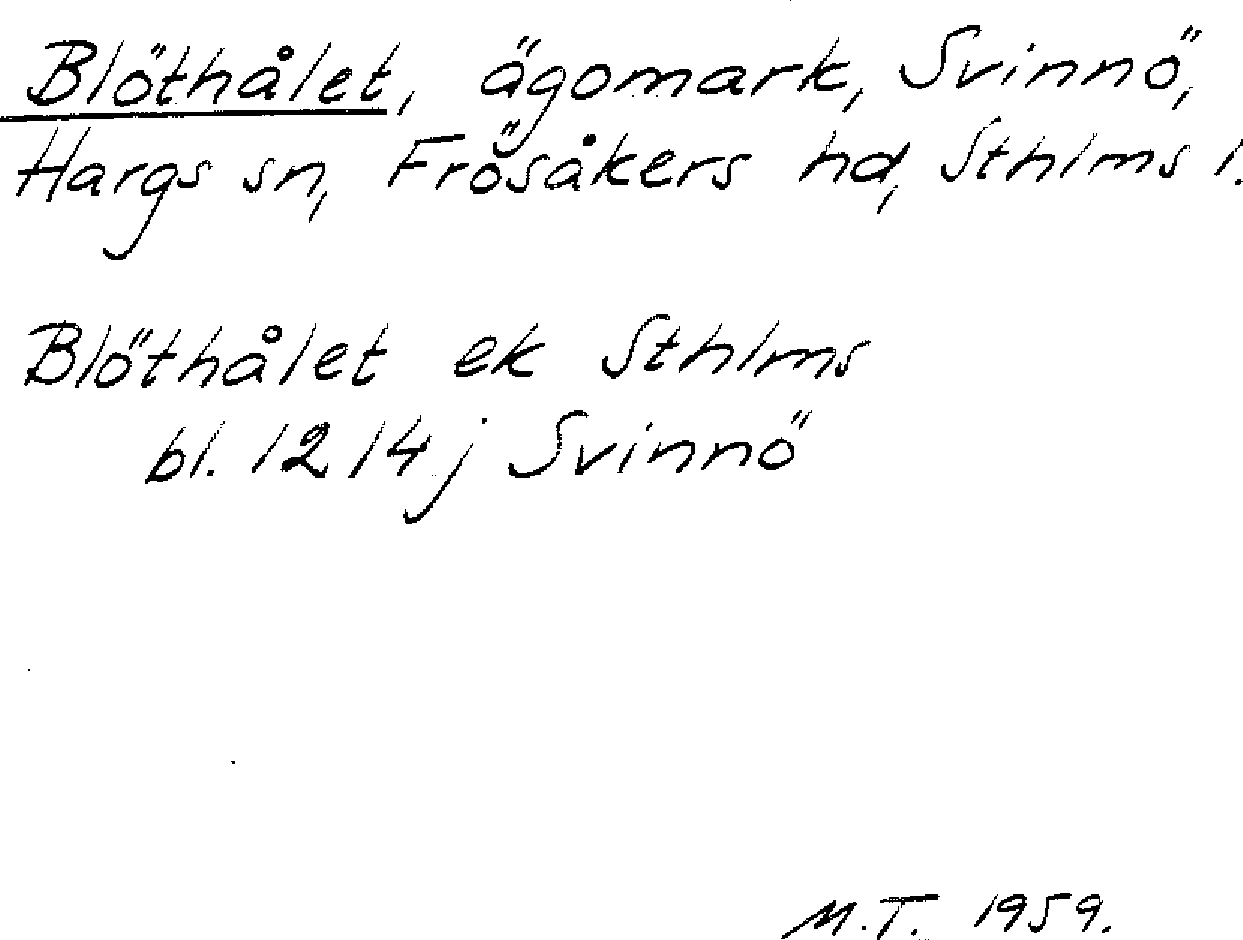 Blöthålet, ägomark, Svinnö,
Hargs sn, Frösåkers hd, Sthlms l.
Blöthålet ek Sthlms
bl. 12 14j Svinnö
M.T. 1959.